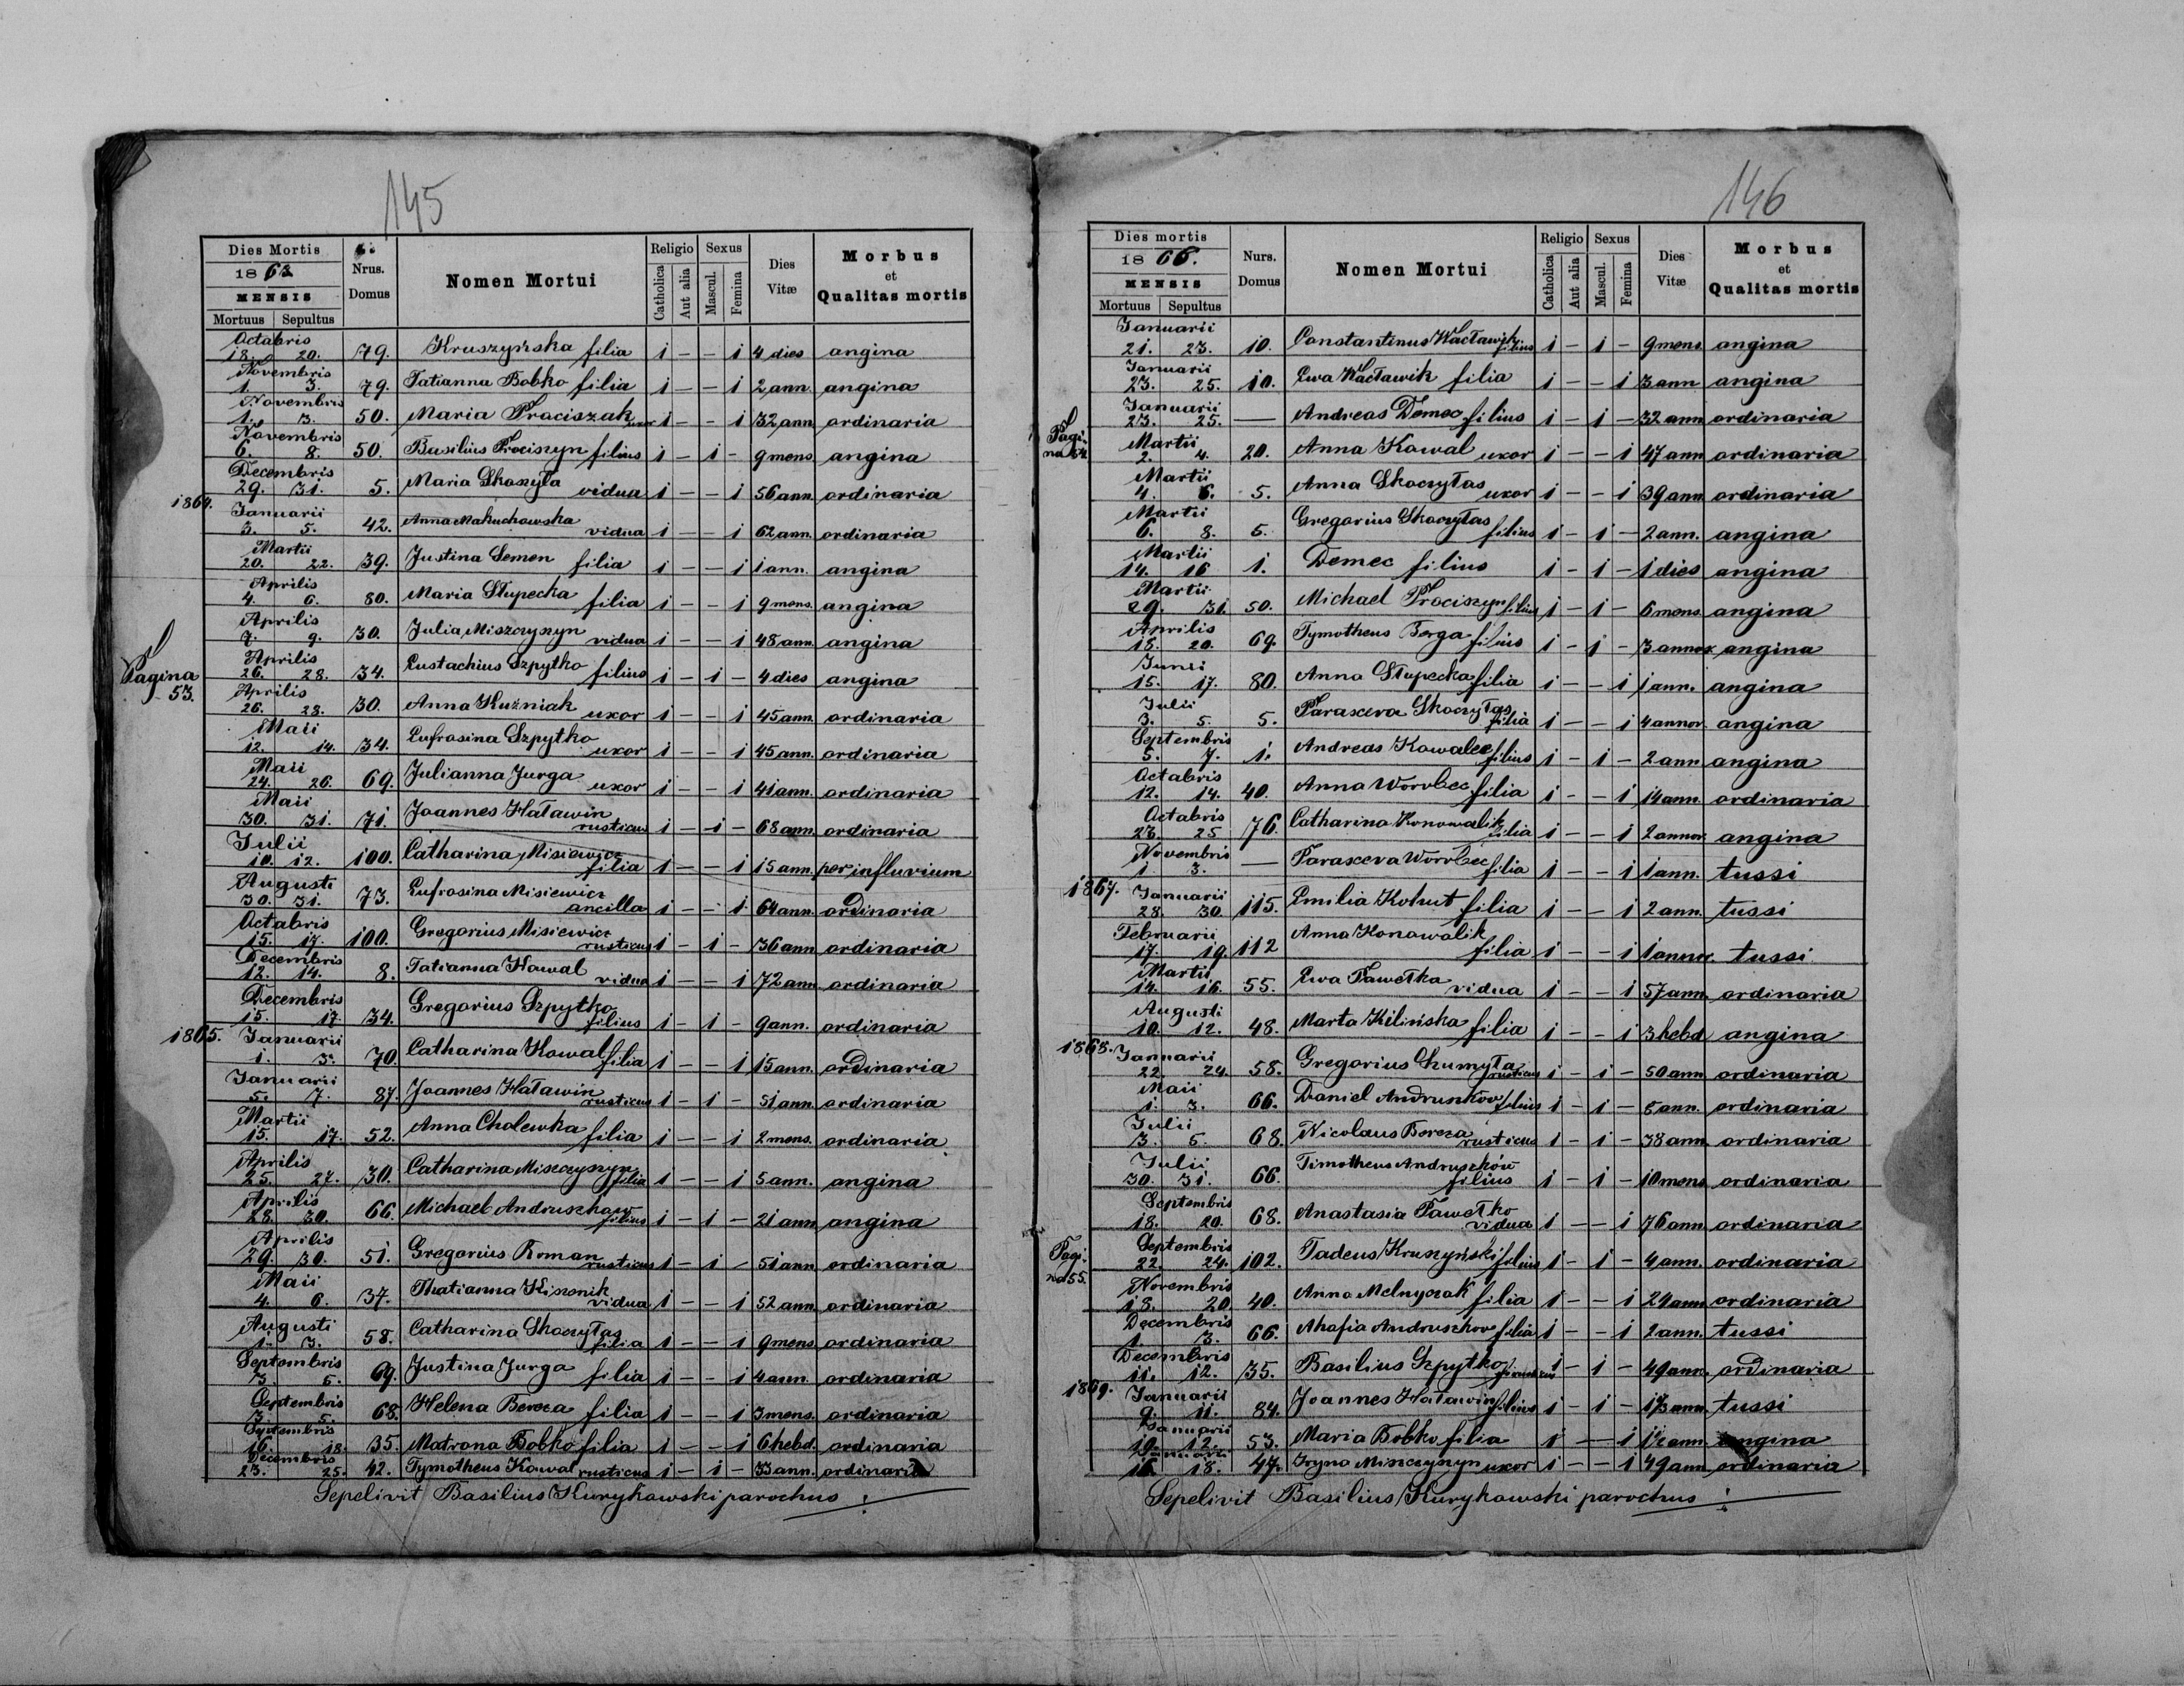 145
Dies Mortis Nrus. Domus Nomen Mortui Religio Sexus Dies Vitæ Morbus et Qualitas mortis
1863
MENSIS
Mortuus Sepultus Catholica Aut alia Mascul. Femina
Octobris
18. 20. 79. Kruszyńska filia 1 – – 1 4 dies angina
Novembris
1. 3. 79. Tatianna Bobko filia 1 – – 1 2 ann. angina
Novembris
1. 3. 50. Maria Prociszak uxor 1 – – 1 32 ann. ordinaria
Novembris
6. 8. 50. Basilius Prociszyn filius 1 – 1 – 9 mens. angina
Decembris
29. 31. 5. Maria Skoczyła vidua 1 – – 1 56 ann. ordinaria
1864. Januarii
3. 5. 42. Anna Makuchowska vidua 1 – – 1 62 ann. ordinaria
Martii
20. 22. 39. Justina Semen filia 1 – – 1 1 ann. angina
Aprilis
4. 6. 80. Maria Słupecka filia 1 – – 1 9 mens. angina
Aprilis
7. 9. 30. Julia Miszczyszyn vidua 1 – – 1 48 ann. angina
Pagina 53.
Aprilis
26. 28. 34. Eustachius Szpytko filius 1 – 1 – 4 dies angina
Aprilis
26. 28. 30. Anna Kuźniak uxor 1 – – 1 45 ann. ordinaria
Maii
12. 14. 34. Eufrosina Szpytko uxor 1 – – 1 45 ann. ordinaria
Maii
24. 26. 69. Julianna Jurga uxor 1 – – 1 41 ann. ordinaria
Maii
30. 31. 71. Joannes Hatawin rusticus 1 – 1 – 68 ann. ordinaria
Julii
10. 12. 100. Catharina Misiewicz filia 1 – – 1 15 ann. per influvium
Augusti
30. 31. 73. Eufrosina Misiewicz ancilla 1 – – 1 64 ann. ordinaria
Octobris
15. 17. 100. Gregorius Misiewicz rusticus 1 – 1 – 36 ann. ordinaria
Decembris
12. 14. 8. Tatianna Kowal vidua 1 – – 1 72 ann. ordinaria
Decembris
15. 17. 34. Gregorius Szpytko filius 1 – 1 – 9 ann. ordinaria
1865. Januarii
1. 3. 70. Catharina Kowal filia 1 – – 1 15 ann. ordinaria
Januarii
5. 7. 87. Joannes Hatawin rusticus 1 – 1 – 51 ann. ordinaria
Martii
15. 17. 52. Anna Cholewka filia 1 – – 1 2 mens. ordinaria
Aprilis
25. 27. 30. Catharina Miszczyszyn filia 1 – – 1 5 ann. angina
Aprilis
28. 30. 66. Michael Andruszkow filius 1 – 1 – 21 ann. angina
Aprilis
29. 30. 51. Gregorius Roman rusticus 1 – 1 – 51 ann. ordinaria
Maii
4. 6. 37. Thatianna vidua 1 – – 1 52 ann. ordinaria
Augusti
1. 3. 58. Catharina Skoczylas filia 1 – – 1 9 mens. ordinaria
Septembris
3. 5. 69. Justina Jurga filia 1 – – 1 4 ann. ordinaria
Septembris
3. 5. 68. Helena Bereza filia 1 – – 1 3 mens. ordinaria
Septembris
16. 18. 35. Matrona Bobko filia 1 – – 1 6 hebd. ordinaria
Decembris
23. 25. 42. Tymotheus Kowal rusticus 1 – 1 – 33 ann. ordinaria
Sepelivit Basilius Kurykowski parochus
146
Dies mortis Nurs. Domus Nomen Mortui Religio Sexus Dies Vitæ Morbus et Qualitas mortis
1866.
MENSIS
Mortuus Sepultus Catholica Aut alia Mascul. Femina
Januarii
21. 23. 10. Constantinus Wacławik filius 1 – 1 – 9 mens. angina
Januarii
23. 25. 10. Ewa Wacławik filia 1 – – 1 3 ann angina
Januarii
23. 25. — Andreas Demec filius 1 – 1 – 32 ann ordinaria
Pagina 54.
Martii
2. 4. 20. Anna Kowal uxor 1 – – 1 47 ann ordinaria
Martii
4. 6. 5. Anna Skoczyłas uxor 1 – – 1 39 ann ordinaria
Martii
6. 8. 5. Gregorius Skoczyłas filius 1 – 1 – 2 ann. angina
Martii
14. 16 1. Demec filius 1 – 1 – 1 dies angina
Martii
29. 31. 50. Michael Prociszyn filius 1 – 1 – 6 mens. angina
Aprilis
18. 20. 69. Tymotheus filius 1 – 1 – 3 annor. angina
Junii
15. 17. 80. Anna Słupecka filia 1 – – 1 1 ann. angina
Julii
3. 5. 5. Parasceva Skoczyłas filia 1 – – 1 4 annor. angina
Septembris
5. 7. 1. Andreas Kowalec filius 1 – 1 – 2 ann angina
Octobris
12. 14. 40. Anna Worobec filia 1 – – 1 14 ann. ordinaria
Octobris
23. 25 76. Catharina Konowalik filia 1 – – 1 2 annor. angina
Novembris
1 3. — Parasceva Worobec filia 1 – – 1 1 ann. tussi
1867. Januarii
28. 30. 115. Emilia Kohut filia 1 – – 1 2 ann. tussi
Februarii
17. 19. 112 Anna Konowalik filia 1 – – 1 1 annor. tussi
Martii
14. 16. 55. Ewa Pawełka vidua 1 – – 1 57 ann. ordinaria
Augusti
10. 12. 48. Marta Kilińska filia 1 – – 1 3 hebd angina
1868. Januarii
22. 24. 58. Gregorius rusticus 1 – 1 – 50 ann ordinaria
Maii
1. 3. 66. Daniel filius 1 – 1 – ann. ordinaria
Julii
3. 5. 68. Nicolaus Bereza rusticus 1 – 1 – 38 ann. ordinaria
Julii
30. 31. 66. Timotheus Andruszków filius 1 – 1 – 10 mens ordinaria
Septembris
18. 20. 68. Anastasia Pawełko vidua 1 – – 1 76 ann. ordinaria
Pagina 55.
Septembris
22. 24. 102. Tadeus Kruszyński filius 1 – 1 – 4 ann. ordinaria
Novembris
18. 20 40. Anna Melnyczak filia 1 – – 1 24 ann ordinaria
Decembris
1. 3. 66. Ahafia Andruszkow filia 1 – – 1 2 ann. tussi
Decembris
11. 12. 35. Basilius Szpytko 1 – 1 – 49 ann. ordinaria
1869. Januarii
9. 11. 84. Joannes Hatawin filius 1 – 1 – ann. tussi
Januarii
10. 12. 53. Maria Bobko filia 1 – – 1 1½ ann. angina
Januarii
16. 18. 47. Iryna Miszczyszyn uxor 1 – – 1 49 ann ordinaria
Sepelivit Basilius Kurykowski parochus